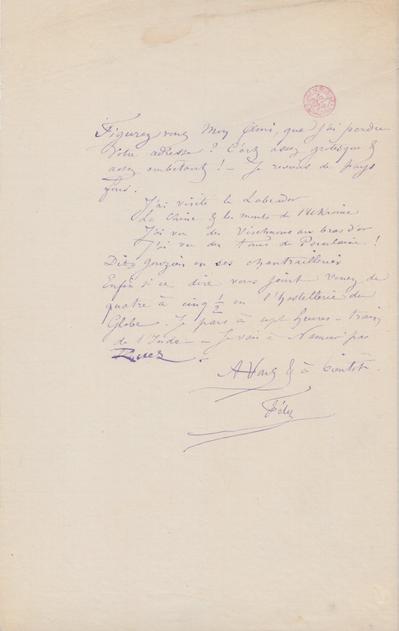 Figurez vous Mon Ami, que j'ai perdu
Votre adresse ? C'est assez grotesque &
assez embêtant ! — Je reviens de pays
fous.
J'ai visité le Labrador
La Chine & les monts de l'Ukraine
J'ai vu des Vischnous au bras d'or
J'ai vu des tours de Porcelaine !
Dit Gouzien en ses
Enfin si ce dire vous joint venez de
quatre à cinq 1/2 en l'Hostellerie du
Globe. Je pars à sept heures — train
de l'Inde — Je vais à Namur pas

A Vous & à bientôt.
Fély